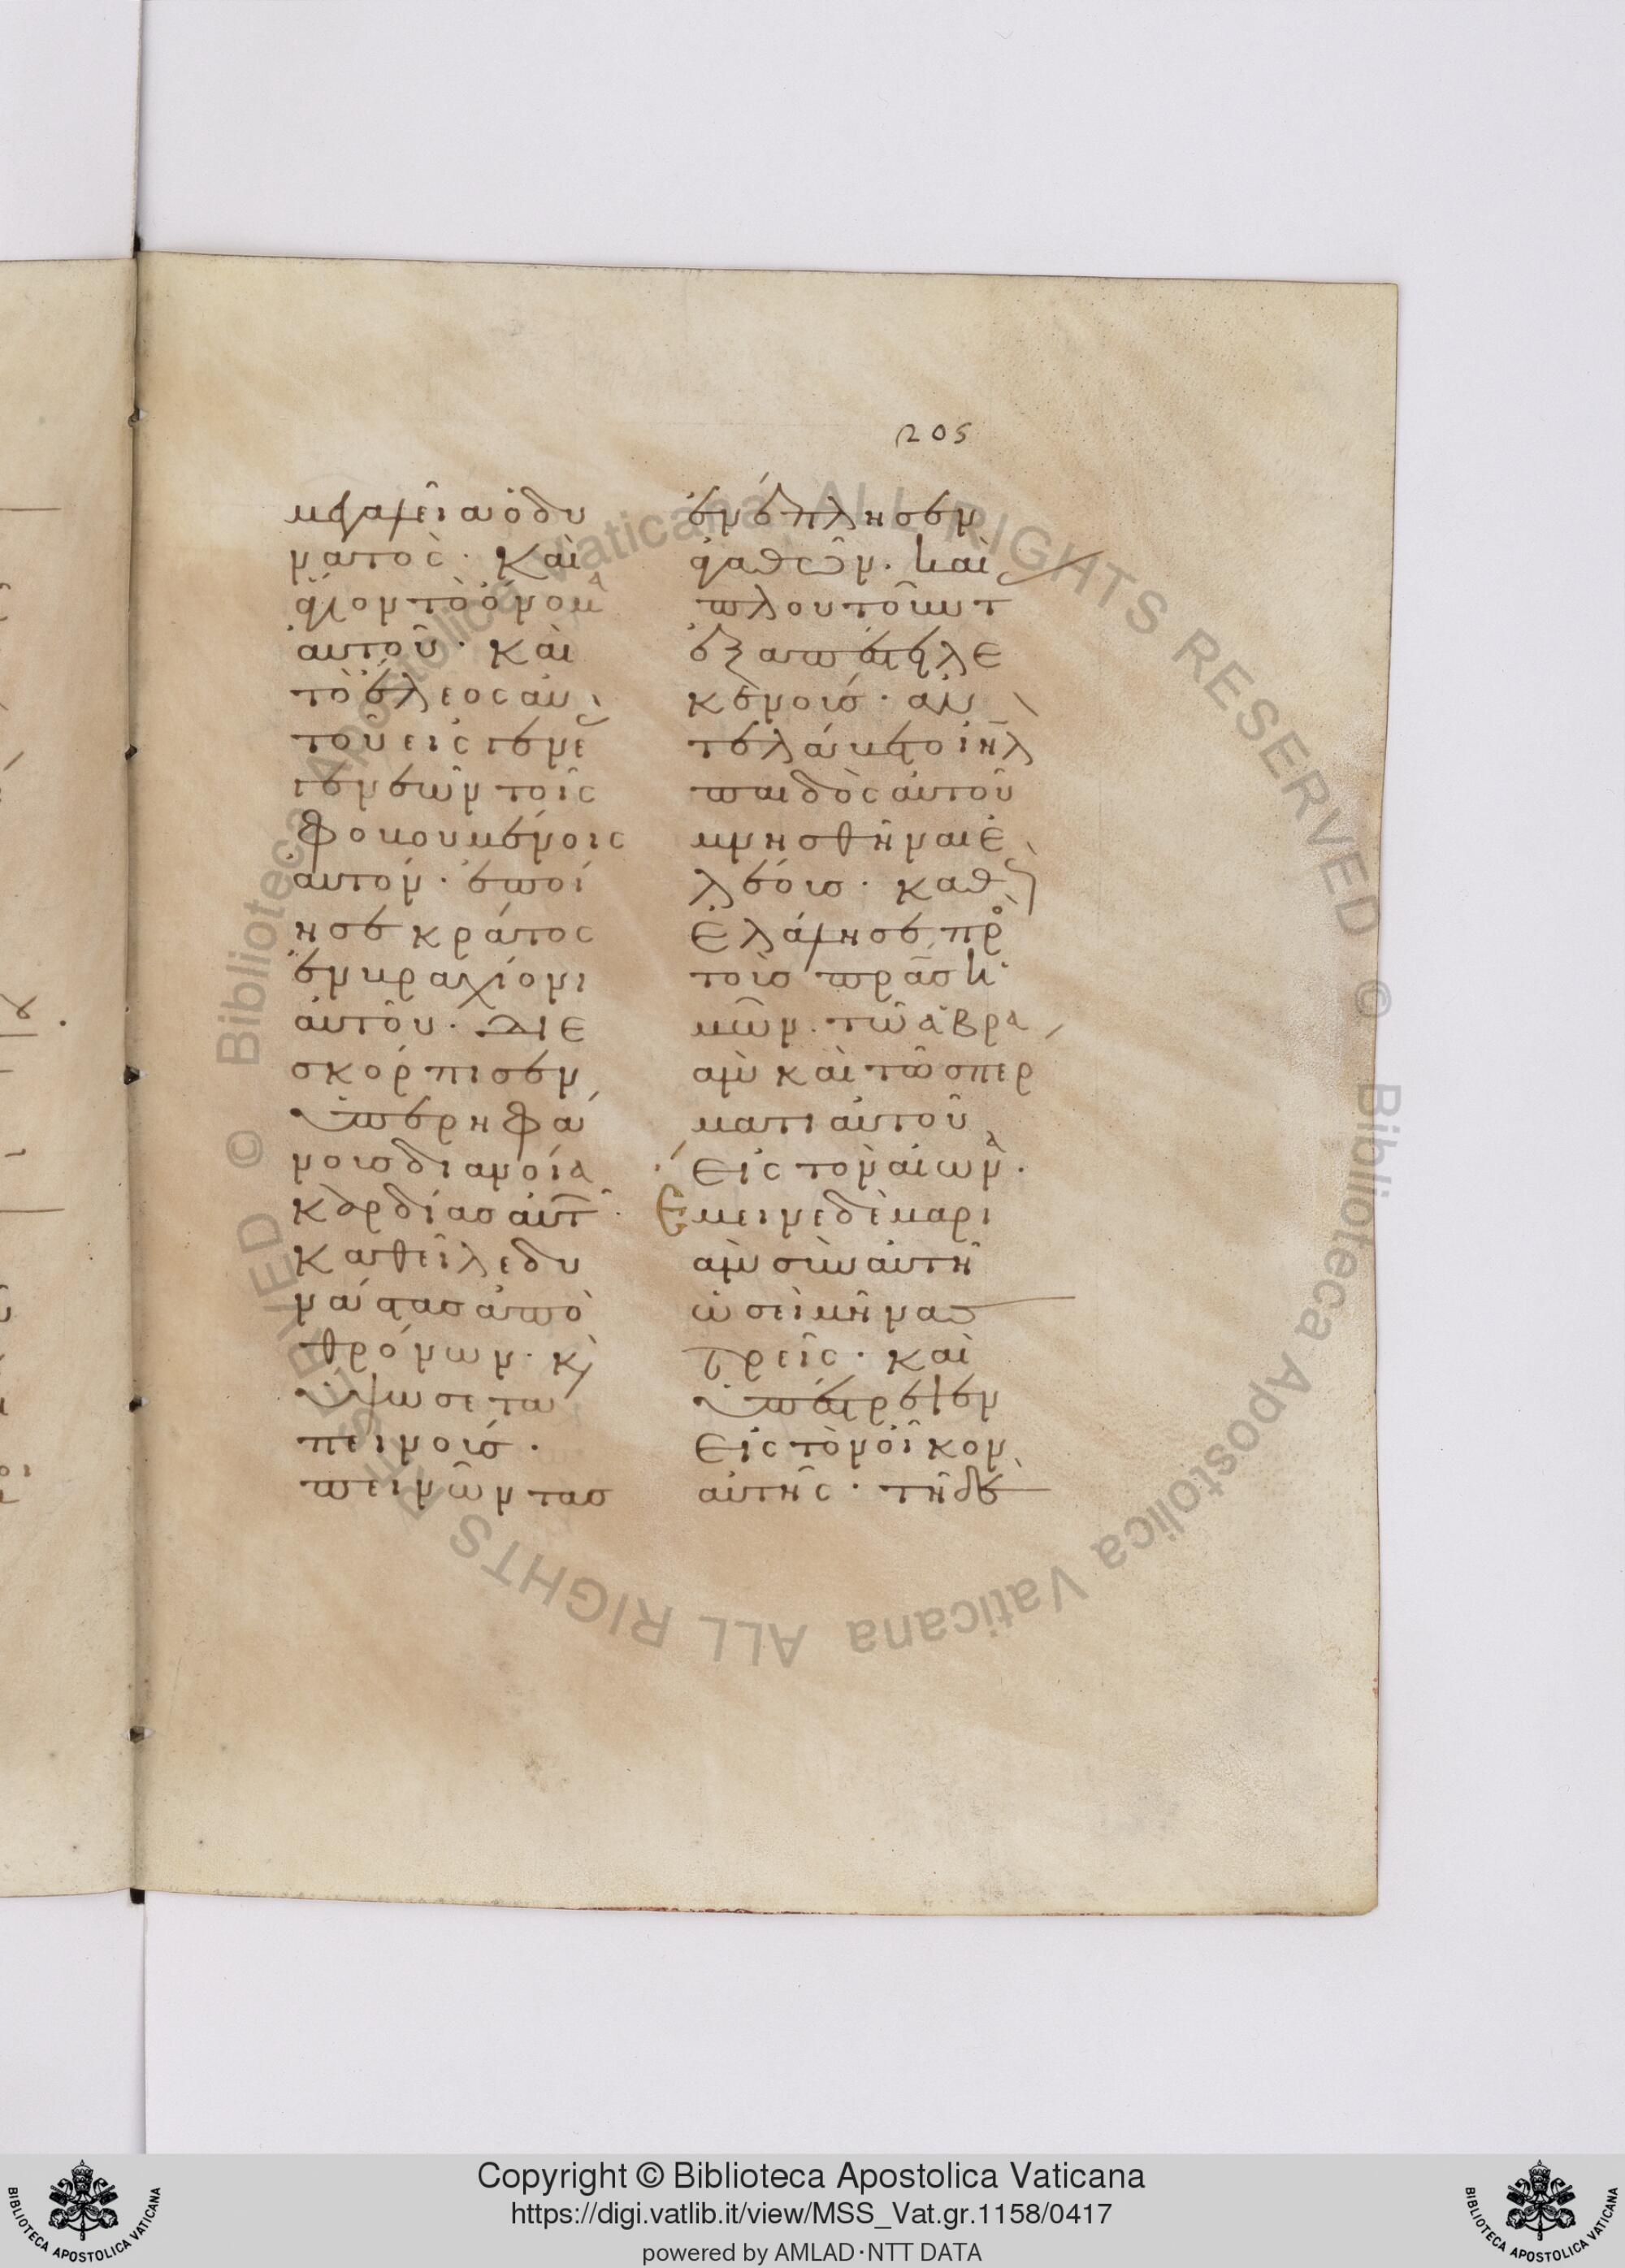 205
μεγαλεῖα ὁ δυ
νατὸς· καὶ
ἅγιον τὸ ὄνομα
αὐτοῦ· καὶ
τὸ ἔλεος αὐ
τοῦ εἰς γενε
γενεῶν τοῖς
φοβουμένοις
αὐτόν· ἐποί
ησε κράτος
ἐν βραχίονι
αὐτοῦ· διε
σκόρπισεν
ὑπερηφά
νοις διανοία
καρδίας αὐτ
καθεῖλε δυ
νάστας ἀπὸ
θρόνων· κ
ὕψωσε τα
πεινοίς·
πεινῶντας
ἐνέπλησεν
ἀγαθῶν· καὶ
πλουτοῦντ
ἐξαπέστειλε
κενοίς· ἀν
τελάβετο ιηλ
παιδὸς αὐτοῦ
μνησθῆναι ἐ
λέοις· καθ
ἐλάλησε πρ
τοὺς πρας ἡ
μῶν· τῶ ἀβρα
ὰμ καὶ τῶ σπερ
ματι αὐτοῦ
εἰς τὸν αἰῶνα·
Ἔμεινε δὲ μαρι
ὰμ σὺν αὐτῆ
ὡσεὶ μῆνας
τρεῖς· καὶ
ὑπέστρεψεν
εἰς τὸν οἶκον
αὐτῆς· τῆ δὲ
Copyright © Biblioteca Apostolica Vaticana
https://digi.vatlib.it/view/MSS_Vat.gr.1158/0417
powered by AMLAD·NTT DATA
BIBLIOTECA APOSTOLICA VATICANA
BIBLIOTECA APOSTOLICA VATICANA
© Biblioteca Apostolica Vaticana ALL RIGHTS RESERVED © Biblioteca Apostolica Vaticana ALL RIGHTS RESERVED